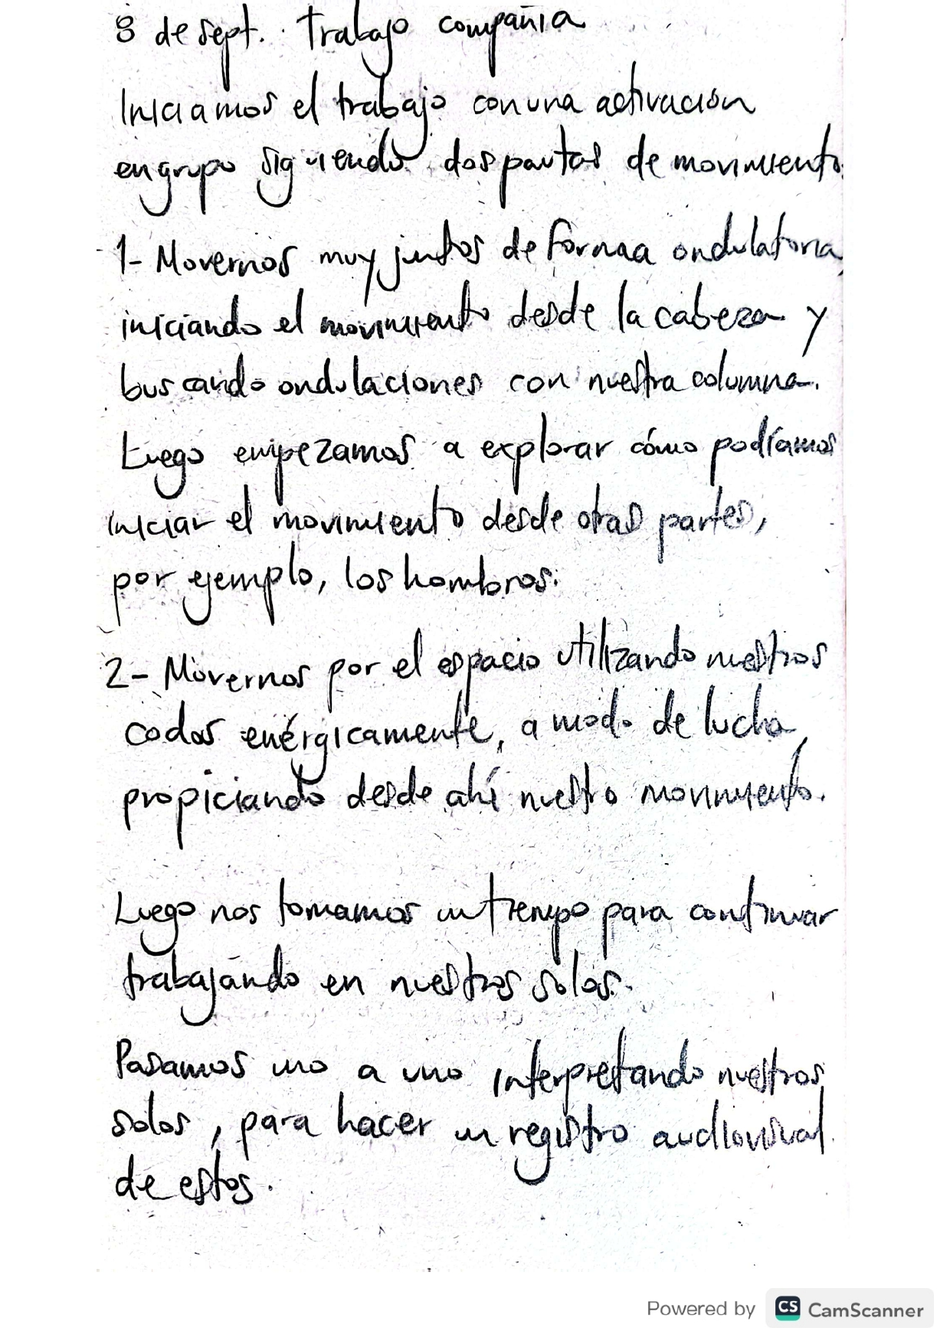 8 de sept. Trabajo compañia
Iniciamos el trabajo con una activación
en grupo siguiendo dos pautas de movimiento.
1- Movernos muy juntos de forma ondulatoria,
iniciando el movimiento desde la cabeza y
buscando ondulaciones con nuestra columna.
Luego empezamos a explorar cómo podíamos
iniciar el movimiento desde otras partes,
por ejemplo, los hombros.
2- Movernos por el espacio utilizando nuestros
codos enérgicamente, a modo de lucha,
propiciando desde ahí nuestro movimiento.
Luego nos tomamos un tiempo para continuar
trabajando en nuestros solos.
Pasamos uno a uno interpretando nuestros
solos, para hacer un registro audiovisual
de estos.
Powered by CS CamScanner